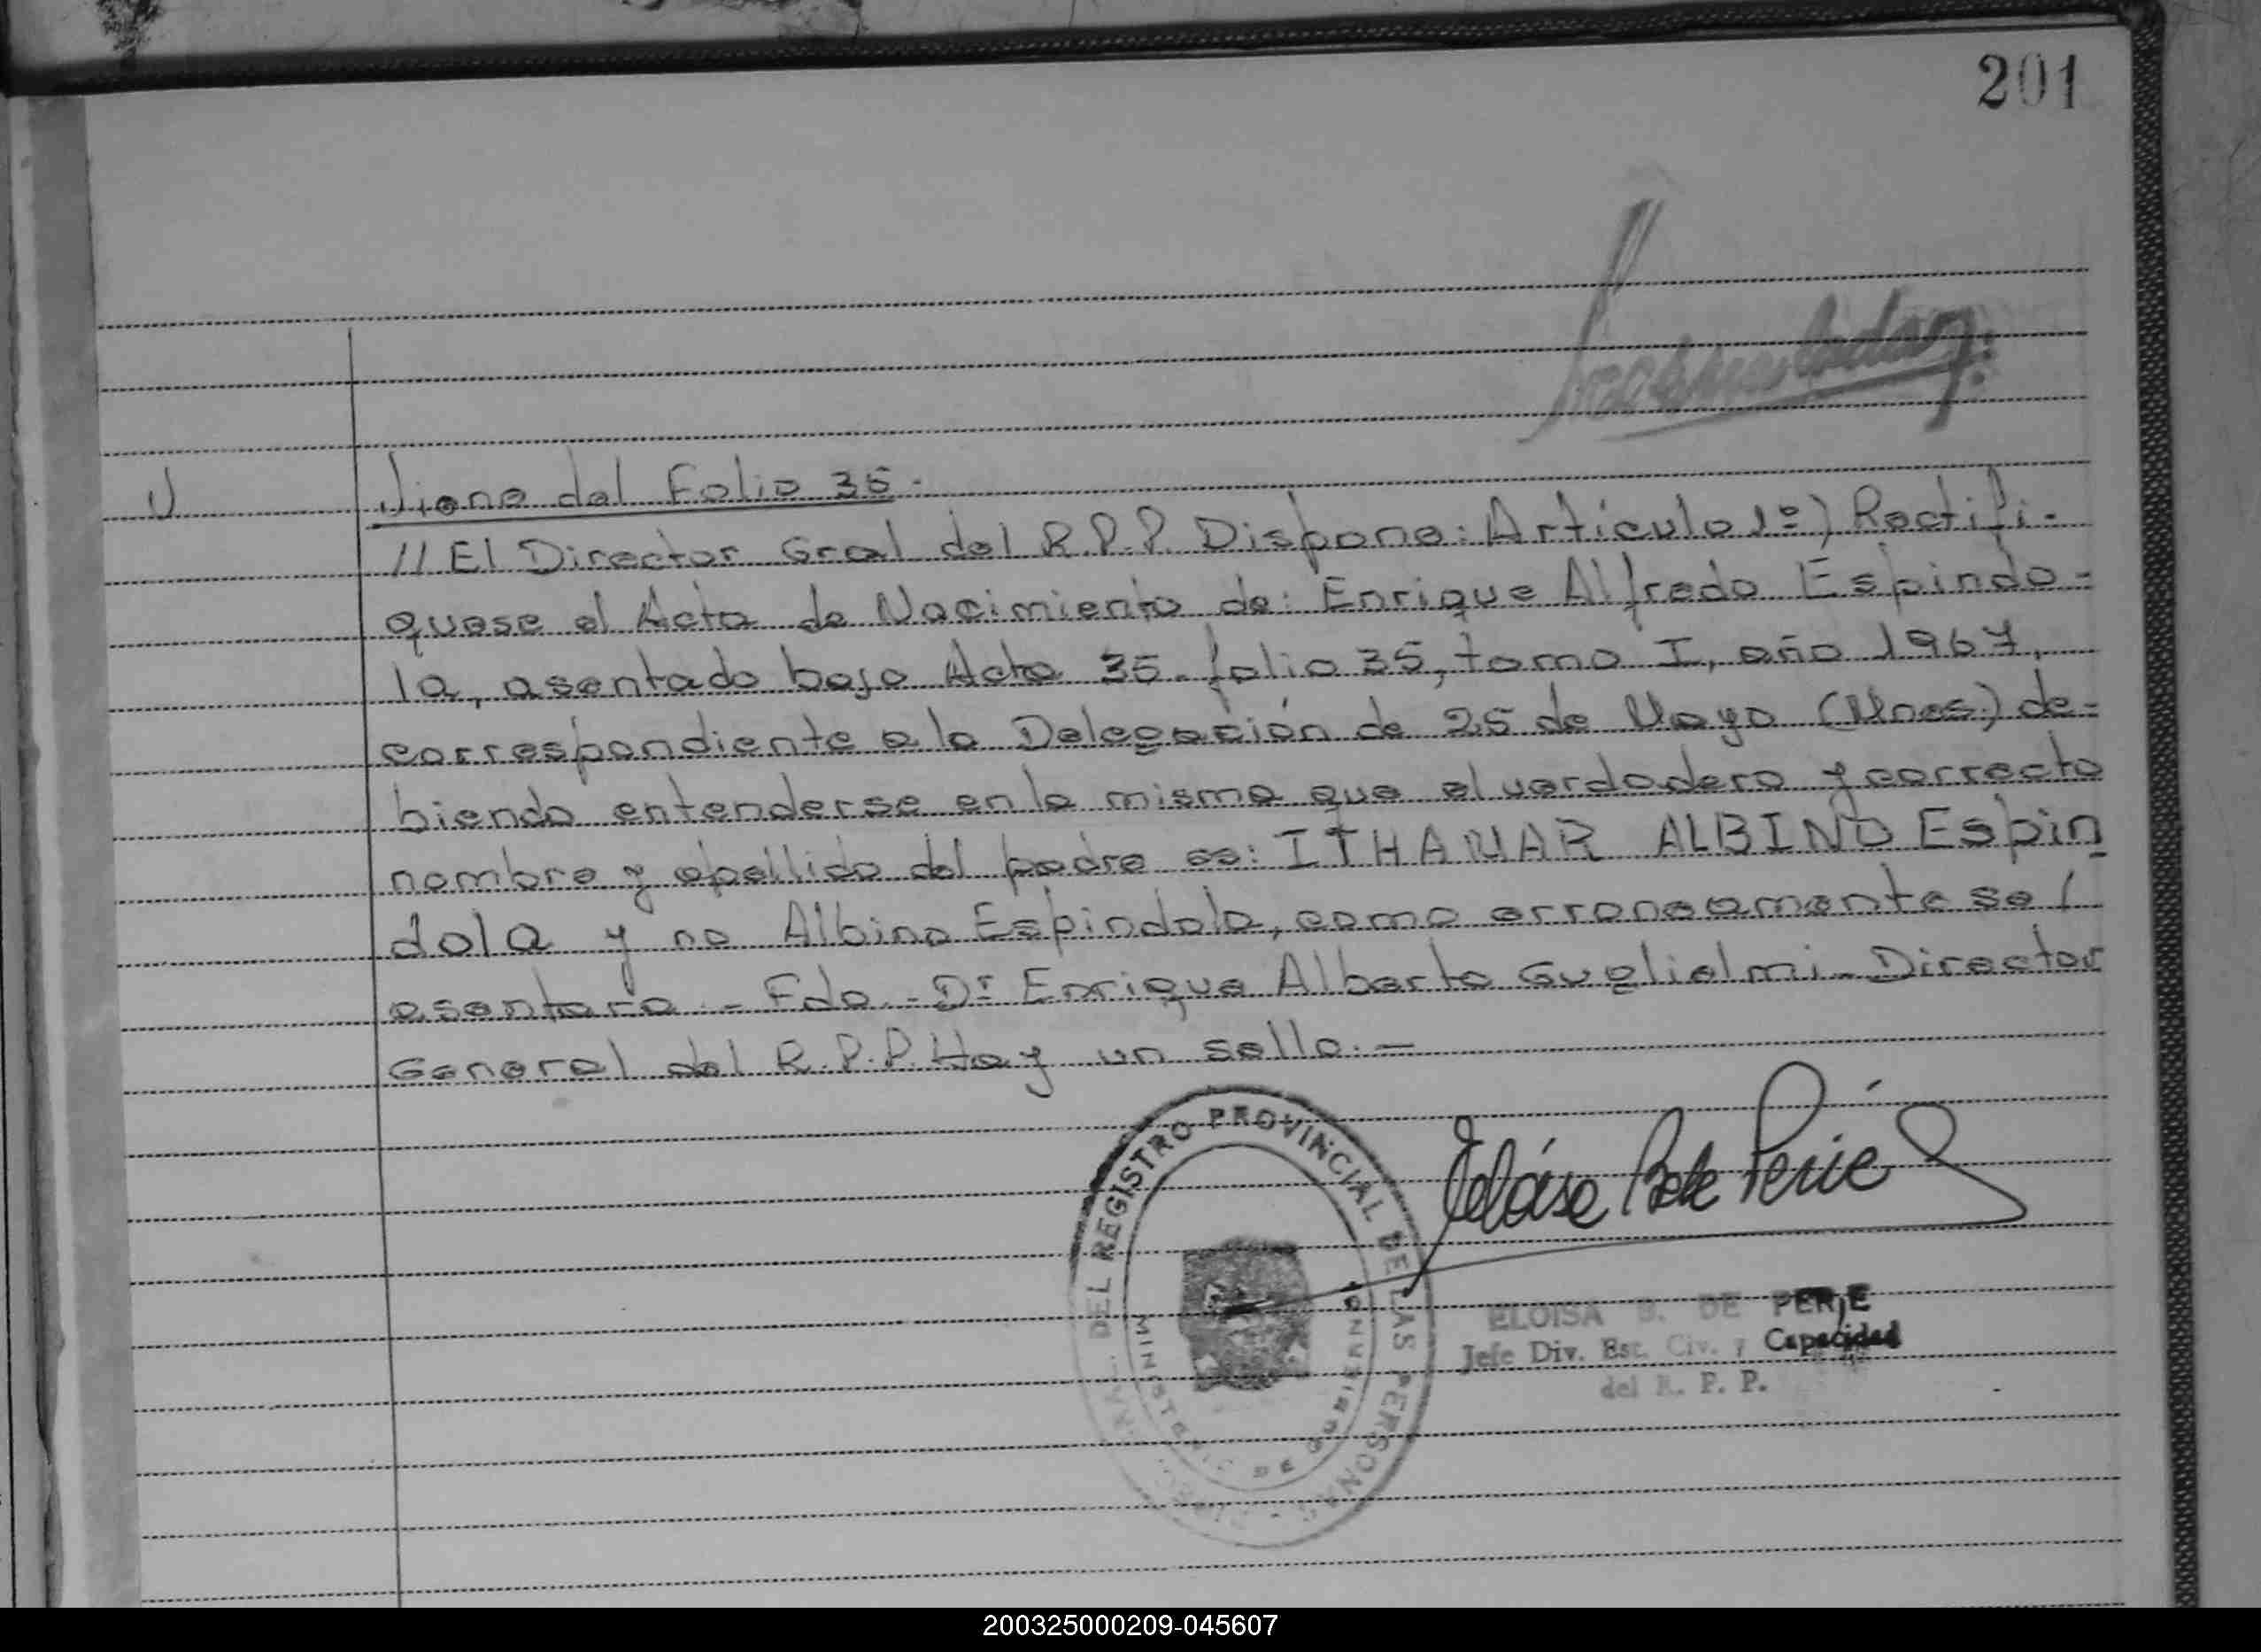 201
Viene del Folio 35.
// El Director Gral del R.P.P. Dispone: Artículo 1º) Rectifi-
quese el Acta de Nacimiento de: Enrique Alfredo Espindo=
la, asentado bajo Acta 35. folio 35, tomo I, año 1967,
correspondiente a la Delegación de 25 de Mayo (Mnes.) de=
biendo entenderse en la misma que el verdadero y correcto
nombre y apellido del padre es: ITHAMAR ALBINO Espin
dola y no Albino Espindola, como erroneamente se /
asentara.- Fdo.- Dr Enrique Alberto Guglielmi - Director
General del R.P.P. Hay un sello.-
DEL REGISTRO PROVINCIAL DE LAS PERSONAS
MINISTERIO DE GOBIERNO
ELOISA B. DE PERIE
Jefe Div. Est. Civ. y Capacidad
del R. P. P.
200325000209-045607